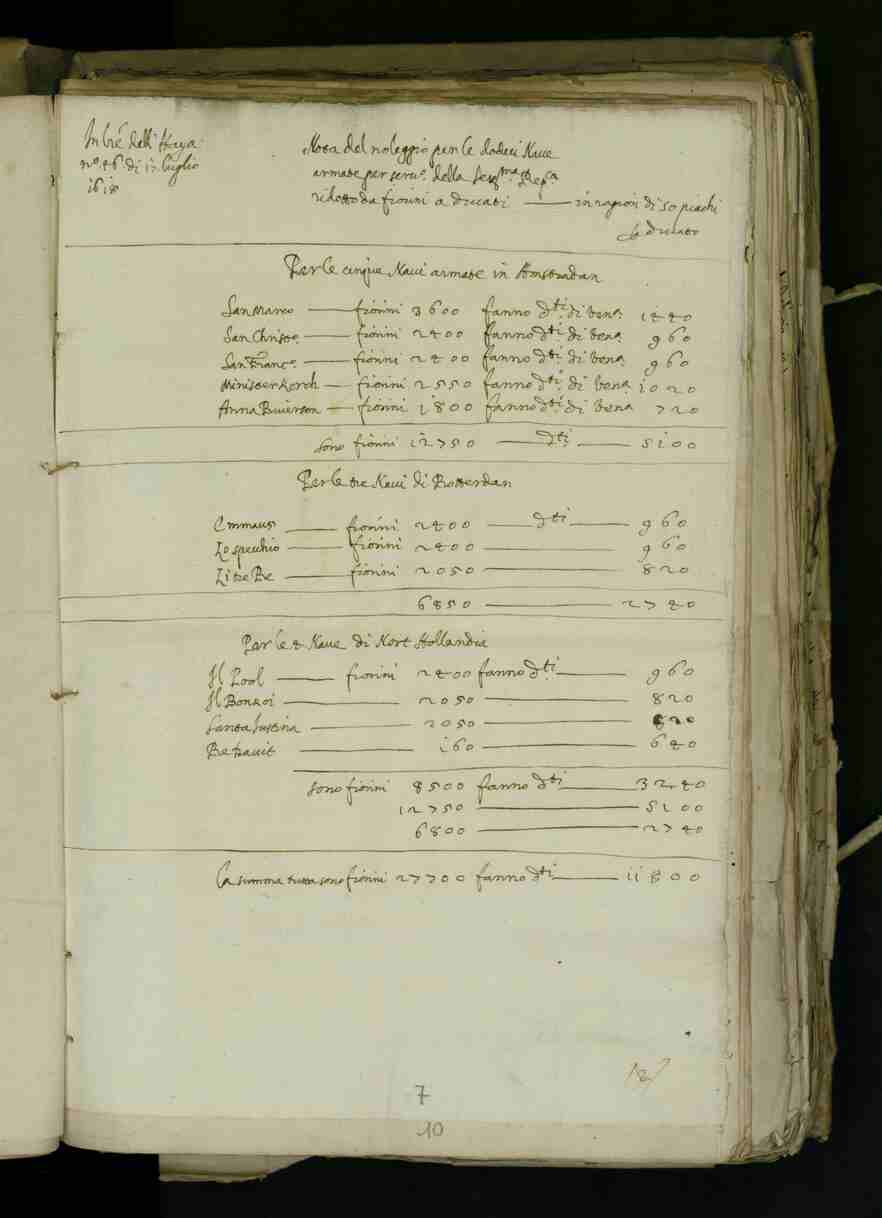 In l're dell'Haya
n.o 46 di 17 luglio
1618
Nota del noleggio per le dodeci Nave
armate per serv.o della Ser.ma Rep.ca
ridotto da fiorini a ducati — in ragion di 50 piachi
ducato
Per le cinque Navi armate in Amstradan
San Marco — fiorini 3600 fanno d.ti di Ven.a 1440
San Christ.o — fiorini 2400 fanno d.ti di Ven.a 960
San Franc.o — fiorini 2400 fanno d.ti di Ven.a 960
Ministerkerch — fiorini 2550 fanno d.ti di Ven.a 1020
Anna Buierson — fiorini 1800 fanno d.ti di Ven.a 720
sono fiorini 12750 — d.ti — 5100
Per le tre Navi di Rotterdan
Emmaus — fiorini 2400 — d.ti — 960
Lo specchio — fiorini 2400 — 960
Li tre Re — fiorini 2050 — 820
6850 — 2740
Per le 4 Nave di Nort Hollandia
Il Pool — fiorini 2400 fanno d.ti — 960
Il Bonroi — 2050 — 820
Santa Iustina — 2050 — 820
Retrauit — 160 — 640
sono fiorini 8500 fanno d.ti — 3240
12750 — 5100
6800 — 2740
La summa tutta sono fiorini 27700 fanno d.ti — 11800
187
7
10